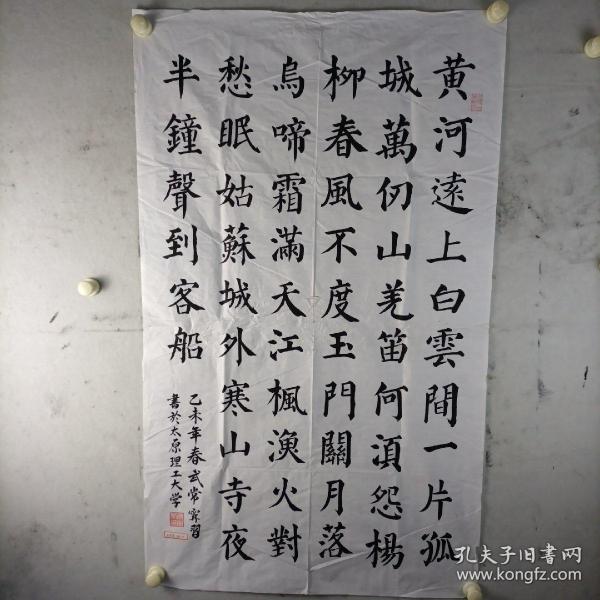 黄河遠上白雲間一片孤
城萬仞山羌笛何湏怨楊
柳春風不度玉門關月落
烏啼霜滿天江楓漁火對
愁眠姑蘇城外寒山寺夜
半鐘聲到客船
乙未年春武常寗習
書於太原理工大学
孔夫子旧書网
www.kongfz.com